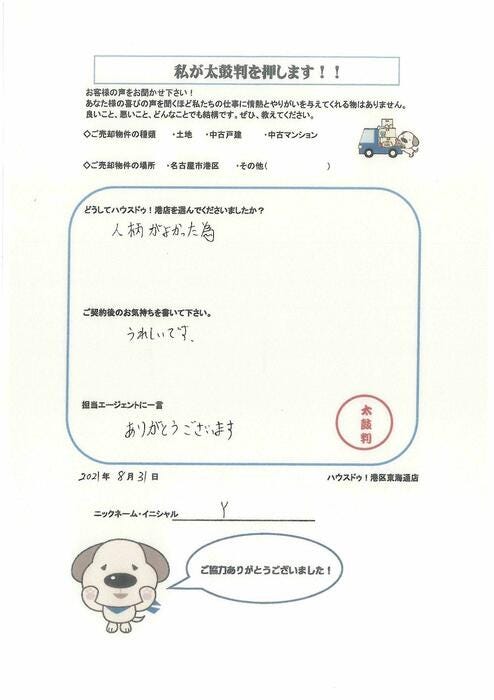 私が太鼓判を押します！！
お客様の声をお聞かせ下さい！
あなた様の喜びの声を聞くほど私たちの仕事に情熱とやりがいを与えてくれる物はありません。
良いこと、悪いこと、どんなことでも結構です。ぜひ、教えてください。
◇ご売却物件の種類　・土地　・中古戸建　・中古マンション
◇ご売却物件の場所　・名古屋市港区　・その他(　　　　　　)
どうしてハウスドゥ！港店を選んでくださいましたか？
人柄がよかった為
ご契約後のお気持ちを書いて下さい。
うれしいです、
担当エージェントに一言
ありがとうございます
太鼓判
2021年 8月31日
ハウスドゥ！港区東海通店
ニックネーム・イニシャル Y
ご協力ありがとうございました！